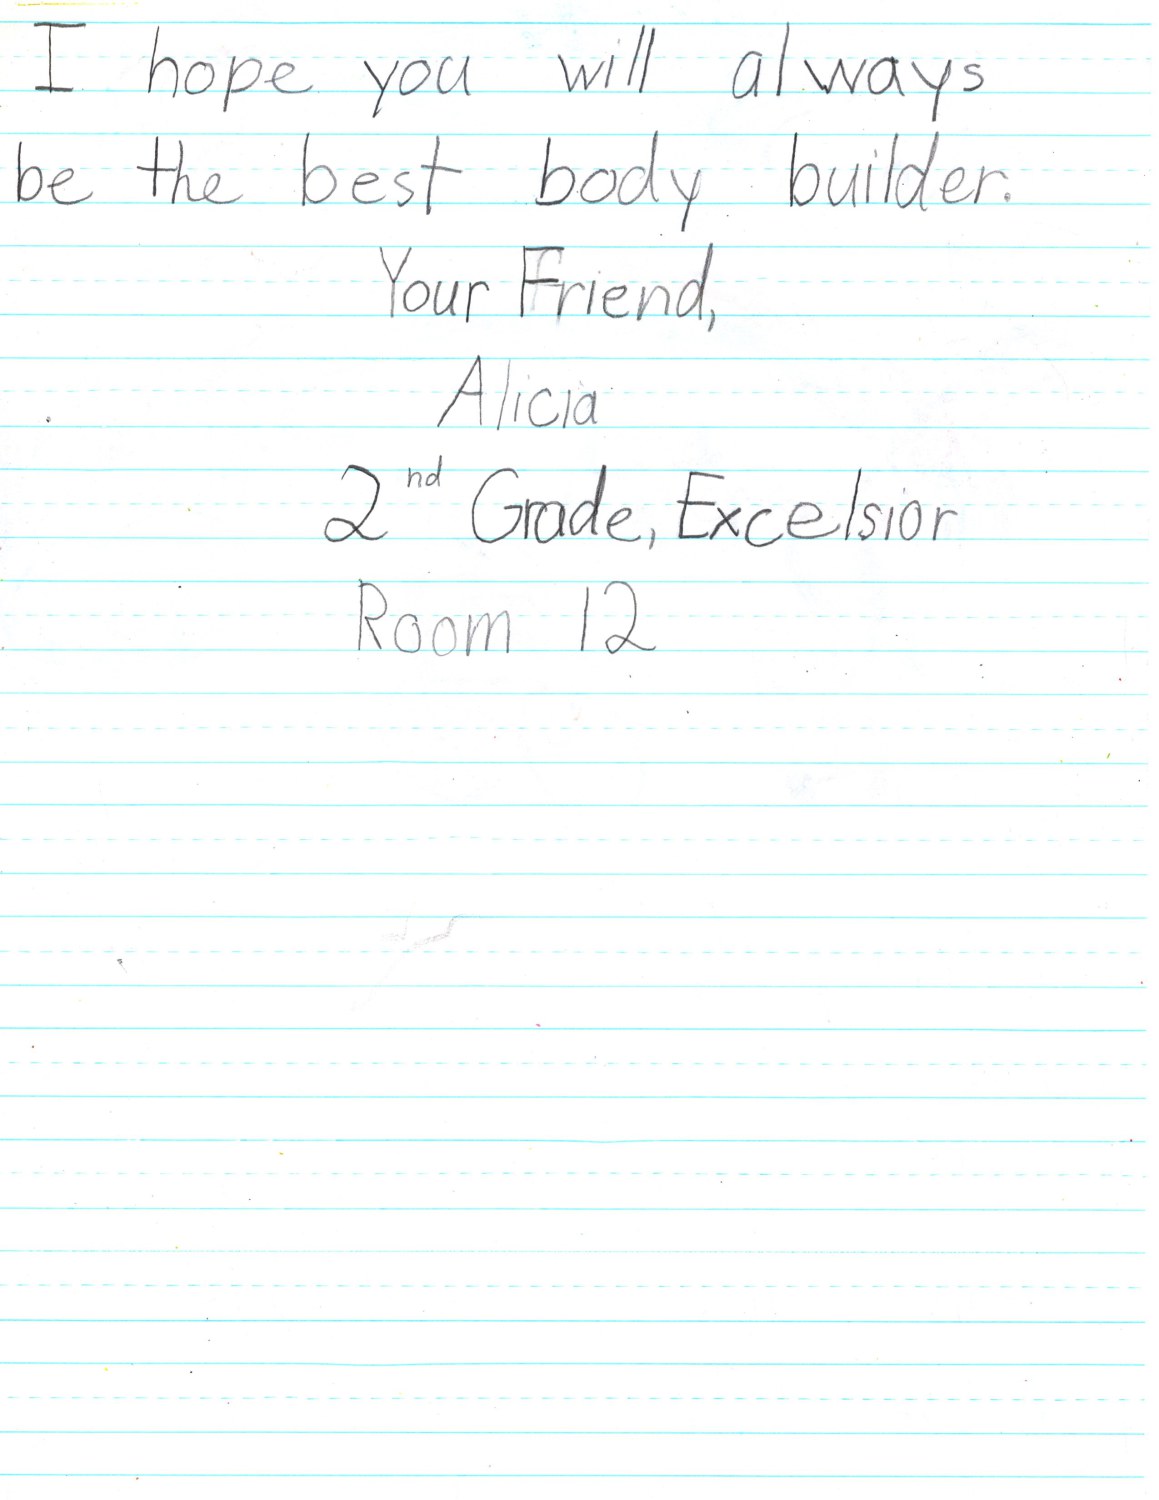 I hope you will always
be the best body builder.
Your Friend,
Alicia
2nd Grade, Excelsior
Room 12